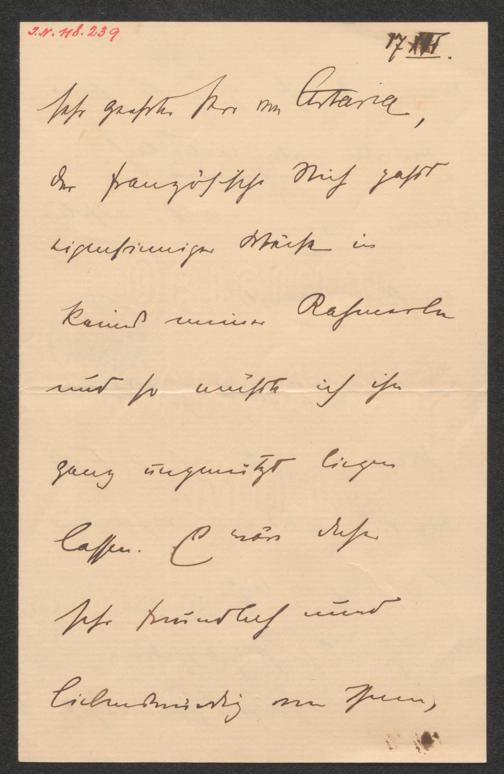 I.N. 118.239
17 III.
sehr geehrter Herr von Artaria,
der französische Stich geht
eigensinniger Weise in
keines meiner Rahmerln
und so müßte ich ihn
ganz ungenützt liegen
lassen. Es wäre daher
sehr freundlich und
liebenswürdig von Ihnen,